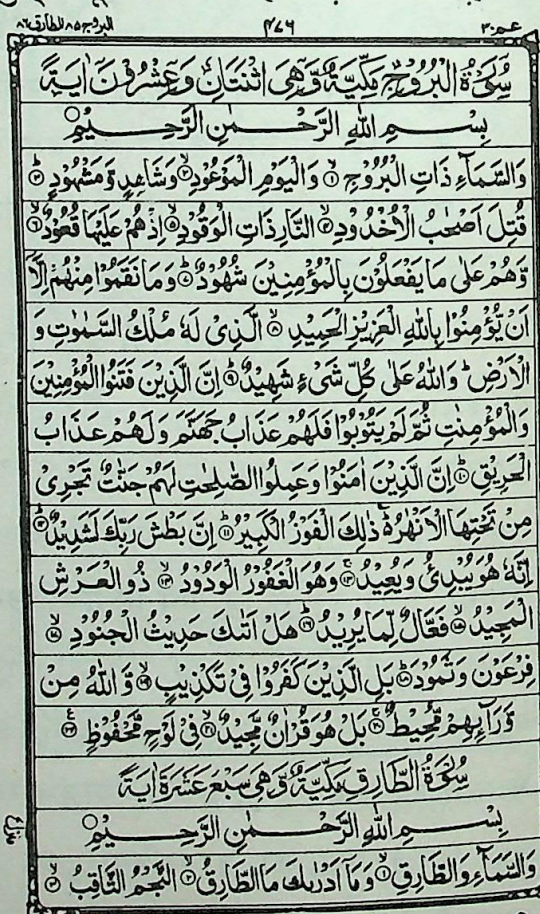 عم ٣٠ ٤٧٦ البروج ٨٥ الطارق ٨٦
سُوْرَةُ الْبُرُوْجِ مَكِّيَّةٌ وَّهِيَ اثْنَتَانِ وَعِشْرُوْنَ اٰيَةً
بِسْمِ اللّٰهِ الرَّحْمٰنِ الرَّحِيْمِ ○
وَالسَّمَآءِ ذَاتِ الْبُرُوْجِ ۝١ وَالْيَوْمِ الْمَوْعُوْدِ ۝٢ وَشَاهِدٍ وَّمَشْهُوْدٍ ۝٣
قُتِلَ اَصْحٰبُ الْاُخْدُوْدِ ۝٤ النَّارِ ذَاتِ الْوَقُوْدِ ۝٥ اِذْ هُمْ عَلَيْهَا قُعُوْدٌ ۝٦
وَّهُمْ عَلٰى مَا يَفْعَلُوْنَ بِالْمُؤْمِنِيْنَ شُهُوْدٌ ۝٧ وَمَا نَقَمُوْا مِنْهُمْ اِلَّآ
اَنْ يُّؤْمِنُوْا بِاللّٰهِ الْعَزِيْزِ الْحَمِيْدِ ۝٨ الَّذِيْ لَهٗ مُلْكُ السَّمٰوٰتِ وَ
الْاَرْضِ ؕ وَاللّٰهُ عَلٰى كُلِّ شَيْءٍ شَهِيْدٌ ۝٩ اِنَّ الَّذِيْنَ فَتَنُوا الْمُؤْمِنِيْنَ
وَالْمُؤْمِنٰتِ ثُمَّ لَمْ يَتُوْبُوْا فَلَهُمْ عَذَابُ جَهَنَّمَ وَلَهُمْ عَذَابُ
الْحَرِيْقِ ۝١٠ اِنَّ الَّذِيْنَ اٰمَنُوْا وَعَمِلُوا الصّٰلِحٰتِ لَهُمْ جَنّٰتٌ تَجْرِيْ
مِنْ تَحْتِهَا الْاَنْهٰرُ ؕ ذٰلِكَ الْفَوْزُ الْكَبِيْرُ ۝١١ اِنَّ بَطْشَ رَبِّكَ لَشَدِيْدٌ ۝١٢
اِنَّهٗ هُوَ يُبْدِئُ وَيُعِيْدُ ۝١٣ وَهُوَ الْغَفُوْرُ الْوَدُوْدُ ۝١٤ ذُو الْعَرْشِ
الْمَجِيْدُ ۝١٥ فَعَّالٌ لِّمَا يُرِيْدُ ۝١٦ هَلْ اَتٰىكَ حَدِيْثُ الْجُنُوْدِ ۝١٧
فِرْعَوْنَ وَثَمُوْدَ ۝١٨ بَلِ الَّذِيْنَ كَفَرُوْا فِيْ تَكْذِيْبٍ ۝١٩ وَّاللّٰهُ مِنْ
وَّرَآئِهِمْ مُّحِيْطٌ ۝٢٠ بَلْ هُوَ قُرْاٰنٌ مَّجِيْدٌ ۝٢١ فِيْ لَوْحٍ مَّحْفُوْظٍ ۝٢٢
سُوْرَةُ الطَّارِقِ مَكِّيَّةٌ وَّهِيَ سَبْعَ عَشَرَةَ اٰيَةً
بِسْمِ اللّٰهِ الرَّحْمٰنِ الرَّحِيْمِ ○
وَالسَّمَآءِ وَالطَّارِقِ ۝١ وَمَآ اَدْرٰىكَ مَا الطَّارِقُ ۝٢ النَّجْمُ الثَّاقِبُ ۝٣